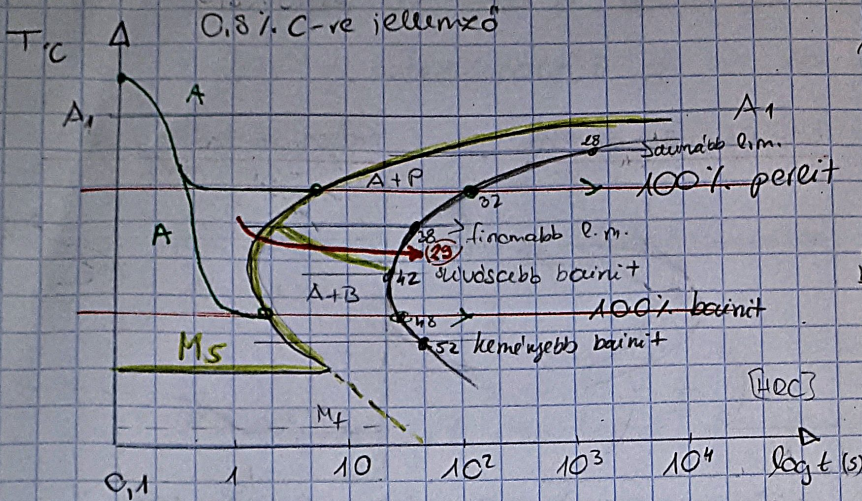 0,8% C-re jellemző
T °C
A
A₁
A₁
28
A+P
32
100% perlit
A
38
finomabb l.m.
29
42
szívósabb bainit
A+B
48
100% bainit
Ms
52 keményebb bainit
[HRC]
Mf
0,1 1 10 10² 10³ 10⁴ log t (s)